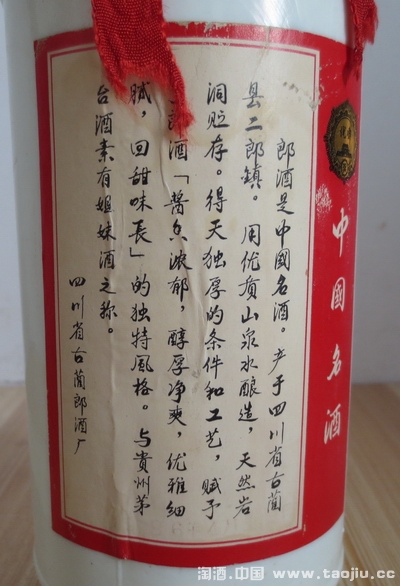 郎酒是中國名酒。产于四川省古蔺
县二郎鎮。用优质山泉水酿造，天然岩
洞贮存。得天独厚的条件和工艺，赋予
郎酒「醬香浓郁，醇厚净爽，优雅细
腻，回甜味長」的独特風格。与貴州茅
台酒素有姐妹酒之称。
四川省古蔺郎酒厂
中國名酒
淘酒.中国 www.taojiu.cc